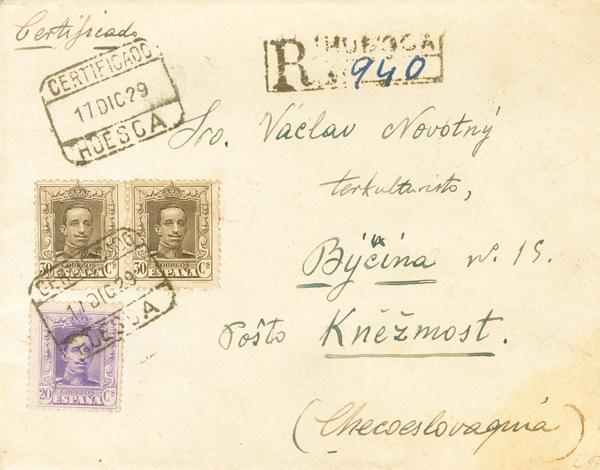 Certificado
CERTIFICADO
17 DIC 29
HUESCA
R HUESCA
940
Sro. Václav Novotný
terkulturisto,
Býčina nº. 19.
Poŝto Kněžmost.
(Checoeslovaquia)
CORREOS
30 ESPAÑA Cs
CORREOS
30 ESPAÑA Cs
CERTIFICADO
17 DIC 29
HUESCA
CORREOS
20 ESPAÑA Cs